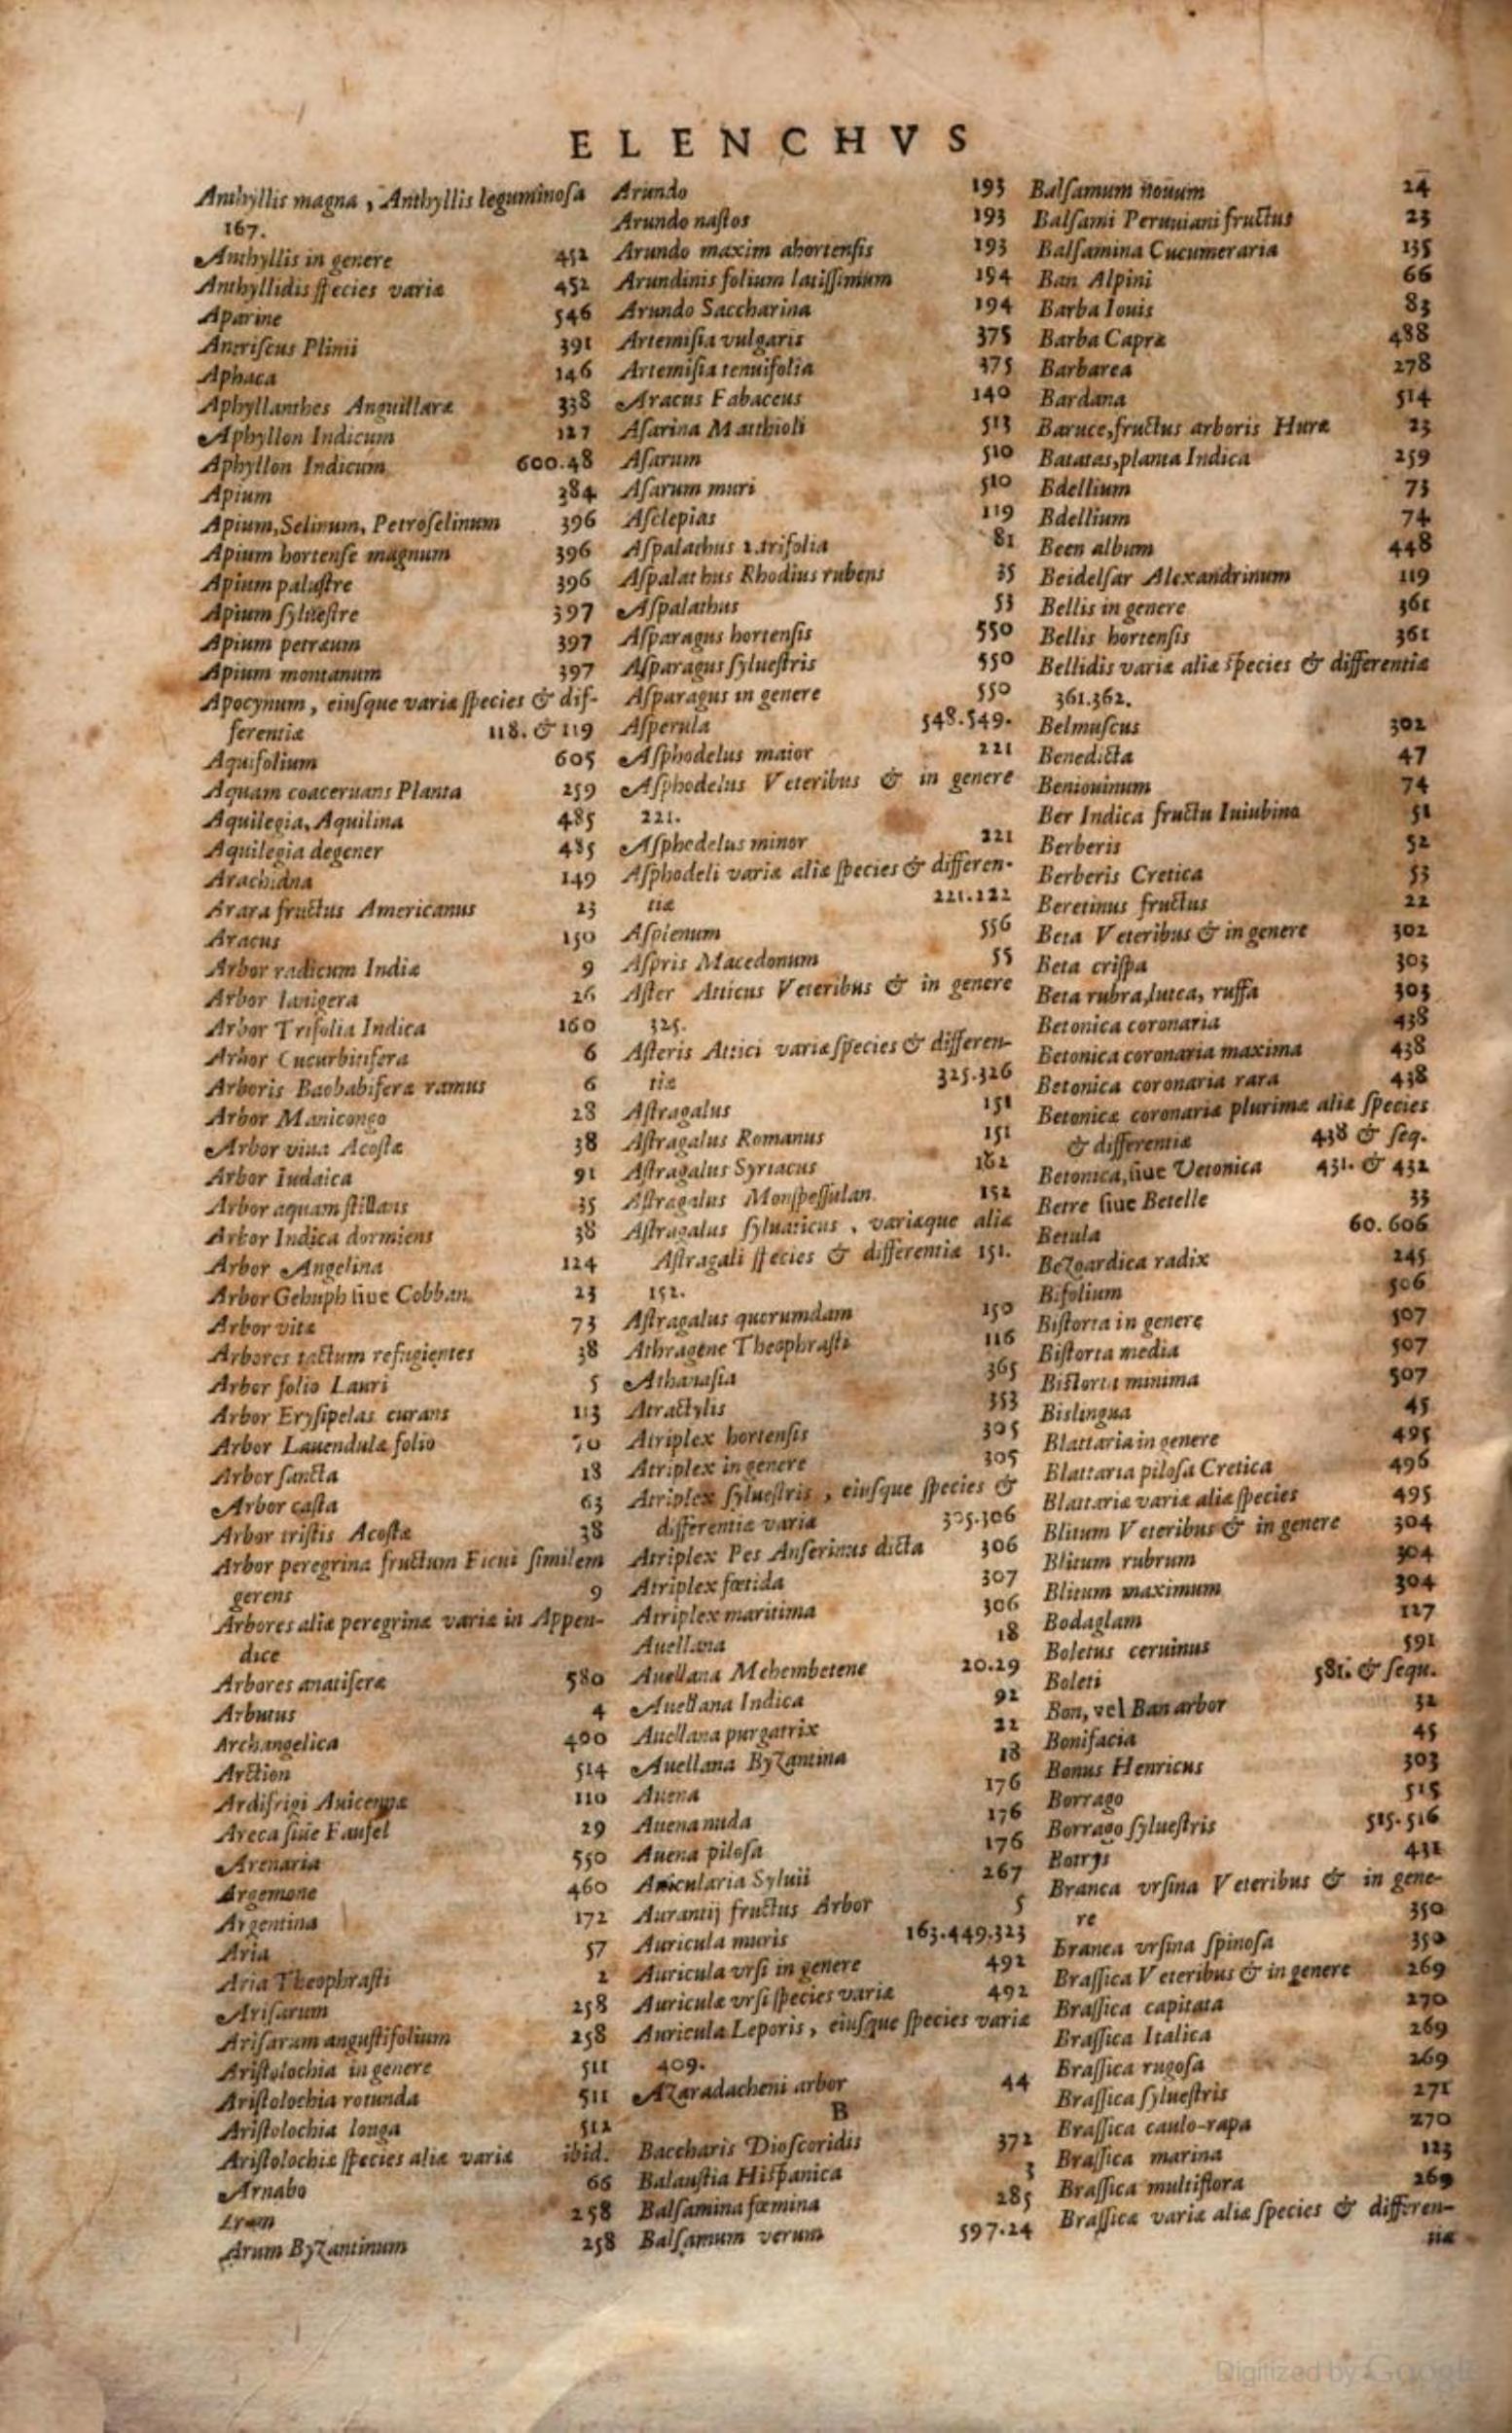 ELENCHVS
Anthyllis magna, Anthyllis leguminosa
167.
Anthyllis in genere 452
Anthyllidis species variæ 452
Aparine 546
Ancriscus Plinii 391
Aphaca 146
Aphyllanthes Anguillaræ 338
Aphyllon Indicum 127
Aphyllon Indicum 600.48
Apium 384
Apium, Selinum, Petroselinum 396
Apium hortense magnum 396
Apium palustre 396
Apium syluestre 397
Apium petræum 397
Apium montanum 397
Apocynum, eiusque variæ species & dif-
ferentiæ 118. & 119
Aquifolium 605
Aquam coaceruans Planta 259
Aquilegia, Aquilina 485
Aquilegia degener 485
Arachidna 149
Arara fructus Americanus 23
Aracus 150
Arbor radicum Indiæ 9
Arbor lanigera 26
Arbor Trifolia Indica 160
Arbor Cucurbitifera 6
Arboris Baobabiferæ ramus 6
Arbor Manicongo 28
Arbor viua Acostæ 38
Arbor Iudaica 91
Arbor aquam stillans 35
Arbor Indica dormiens 38
Arbor Angelina 124
Arbor Gehuph siue Cobban 23
Arbor vitæ 73
Arbores tactum refugientes 38
Arbor folio Lauri 5
Arbor Erysipelas curans 113
Arbor Lauendulæ folio 70
Arbor sancta 18
Arbor casta 63
Arbor tristis Acostæ 38
Arbor peregrina fructum Ficui similem
gerens 9
Arbores aliæ peregrinæ variæ in Appen-
dice
Arbores anatiferæ 580
Arbutus 4
Archangelica 400
Arction 514
Ardifrigi Auicennæ 110
Areca siue Faufel 29
Arenaria 550
Argemone 460
Argentina 172
Aria 57
Aria Theophrasti 2
Arisarum 258
Arisarum angustifolium 258
Aristolochia in genere 511
Aristolochia rotunda 511
Aristolochia longa 512
Aristolochiæ species aliæ variæ ibid.
Arnabo 66
Arum 258
Arum Byzantinum 258
Arundo 193
Arundo nastos 193
Arundo maxim ahortensis 193
Arundinis folium latissimum 194
Arundo Saccharina 194
Artemisia vulgaris 375
Artemisia tenuifolia 375
Aracus Fabaceus 140
Asarina Matthioli 513
Asarum 510
Asarum muri 510
Asclepias 119
Aspalathus 2.trifolia 81
Aspalathus Rhodius rubens 35
Aspalathus 53
Asparagus hortensis 550
Asparagus syluestris 550
Asparagus in genere 550
Asperula 548.549.
Asphodelus maior 221
Asphodelus Veteribus & in genere
221.
Asphedelus minor 221
Asphodeli variæ aliæ species & differen-
tiæ 221.222
Asplenum 556
Aspris Macedonum 55
Aster Atticus Veteribus & in genere
325.
Asteris Attici variæ species & differen-
tiæ 325.326
Astragalus 151
Astragalus Romanus 151
Astragalus Syriacus 162
Astragalus Monspessulan. 152
Astragalus syluaticus, variæque aliæ
Astragali species & differentiæ 151.
152.
Astragalus quorumdam 150
Athragene Theophrasti 116
Athanasia 365
Atractylis 353
Atriplex hortensis 305
Atriplex in genere 305
Atriplex syluestris, eiusque species &
differentiæ variæ 305.306
Atriplex Pes Anserinus dicta 306
Atriplex fœtida 307
Atriplex maritima 306
Auellana 18
Auellana Mehembetene 20.29
Auellana Indica 92
Auellana purgatrix 22
Auellana Byzantina 18
Auena 176
Auena nuda 176
Auena pilosa 176
Auricularia Syluii 267
Aurantij fructus Arbor 5
Auricula muris 163.449.323
Auricula vrsi in genere 492
Auriculæ vrsi species variæ 492
Auricula Leporis, eiusque species variæ
409.
Azaradacheni arbor 44
B
Baccharis Dioscoridis 372
Balaustia Hispanica 3
Balsamina fœmina 285
Balsamum verum 597.24
Balsamum nouum 24
Balsami Peruuiani fructus 23
Balsamina Cucumeraria 135
Ban Alpini 66
Barba Iouis 83
Barba Capræ 488
Barbarea 278
Bardana 514
Baruce, fructus arboris Huræ 23
Batatas, planta Indica 259
Bdellium 73
Bdellium 74
Been album 448
Beidelsar Alexandrinum 119
Bellis in genere 361
Bellis hortensis 361
Bellidis variæ aliæ species & differentiæ
361.362.
Belmuscus 302
Benedicta 47
Benioninum 74
Ber Indica fructu Iuiubino 51
Berberis 52
Berberis Cretica 53
Beretinus fructus 22
Beta Veteribus & in genere 302
Beta crispa 303
Beta rubra, lutea, ruffa 303
Betonica coronaria 438
Betonica coronaria maxima 438
Betonica coronaria rara 438
Betonicæ coronariæ plurimæ aliæ species
& differentiæ 438 & seq.
Betonica, siue Vetonica 431. & 432
Betre siue Betelle 33
Betula 60.606
Bezoardica radix 245
Bifolium 506
Bistorta in genere 507
Bistorta media 507
Bistorta minima 507
Bislingua 45
Blattaria in genere 495
Blattaria pilosa Cretica 496
Blattariæ variæ aliæ species 495
Blitum Veteribus & in genere 304
Blitum rubrum 304
Blitum maximum 304
Bodaglam 127
Boletus ceruinus 591
Boleti 581. & sequ.
Bon, vel Ban arbor 32
Bonifacia 45
Bonus Henricus 303
Borrago 515
Borrago syluestris 515.516
Botrys 432
Branca vrsina Veteribus & in gene-
re 350
Branca vrsina spinosa 350
Brassica Veteribus & in genere 269
Brassica capitata 270
Brassica Italica 269
Brassica rugosa 269
Brassica syluestris 271
Brassica caulo-rapa 270
Brassica marina 123
Brassica multiflora 269
Brassicæ variæ aliæ species & differen-
tiæ
Digitized by Google